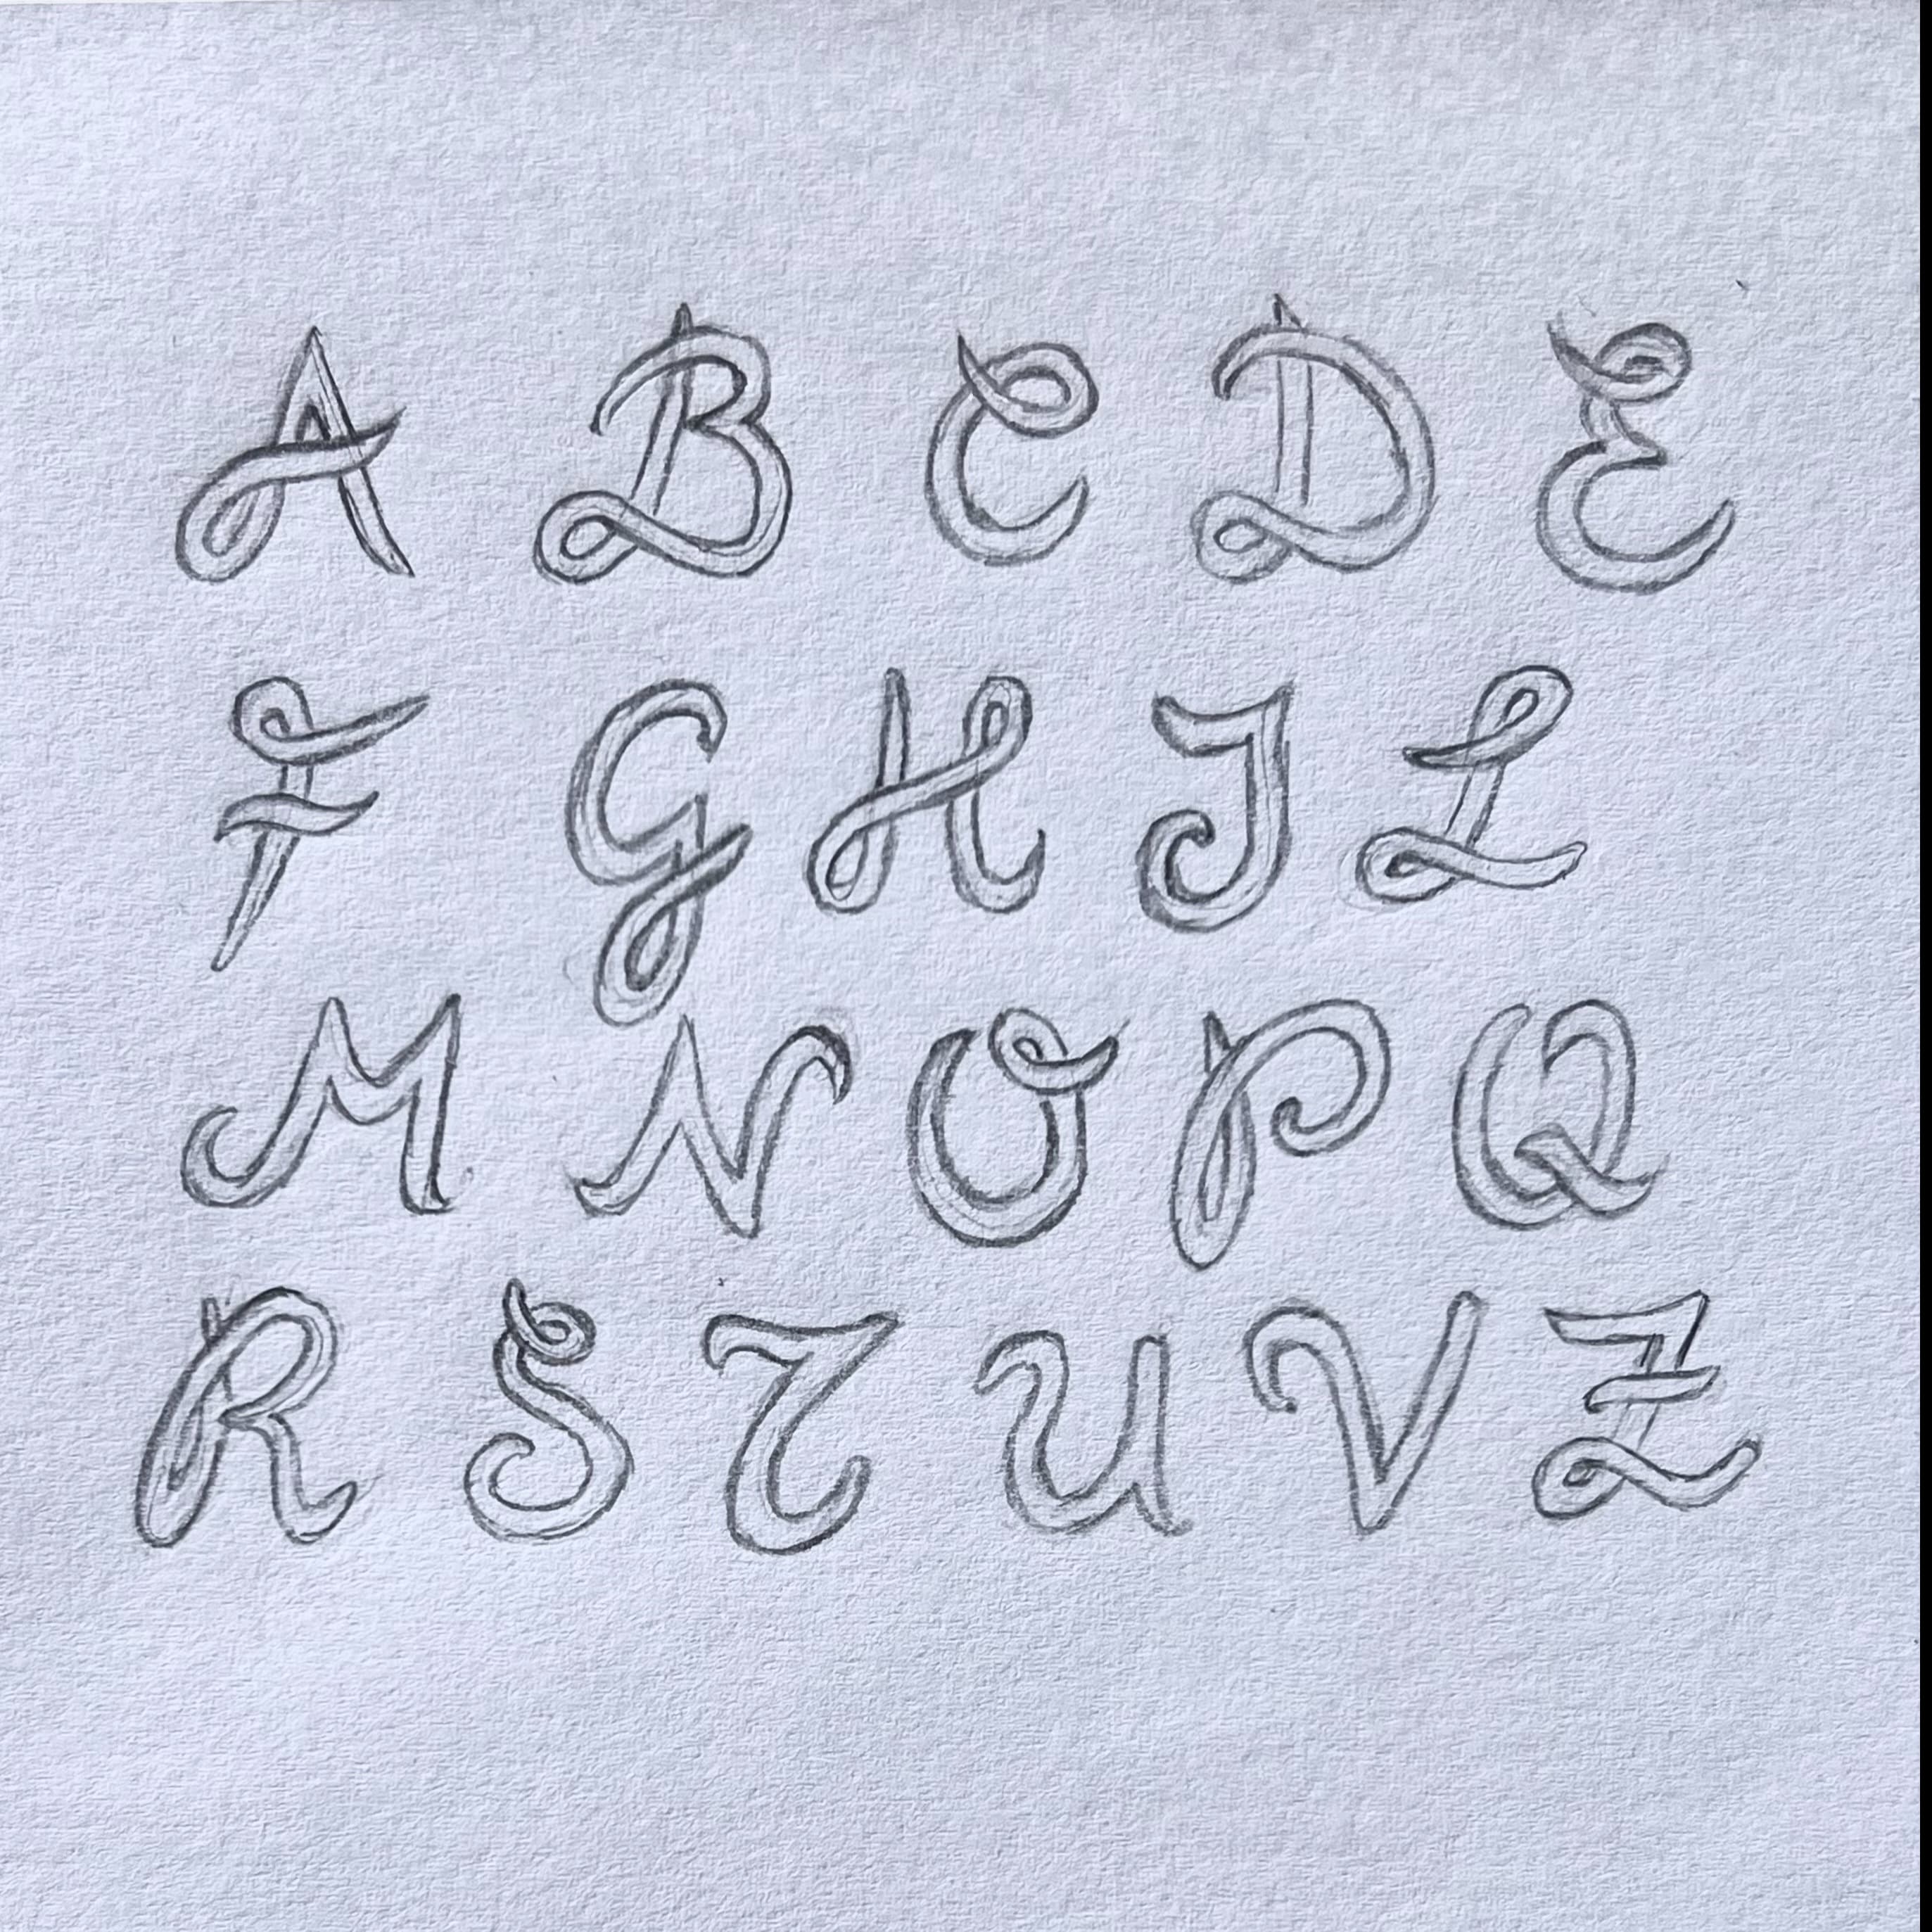 A B C D E
F G H J L
M N O P Q
R S T U V Z